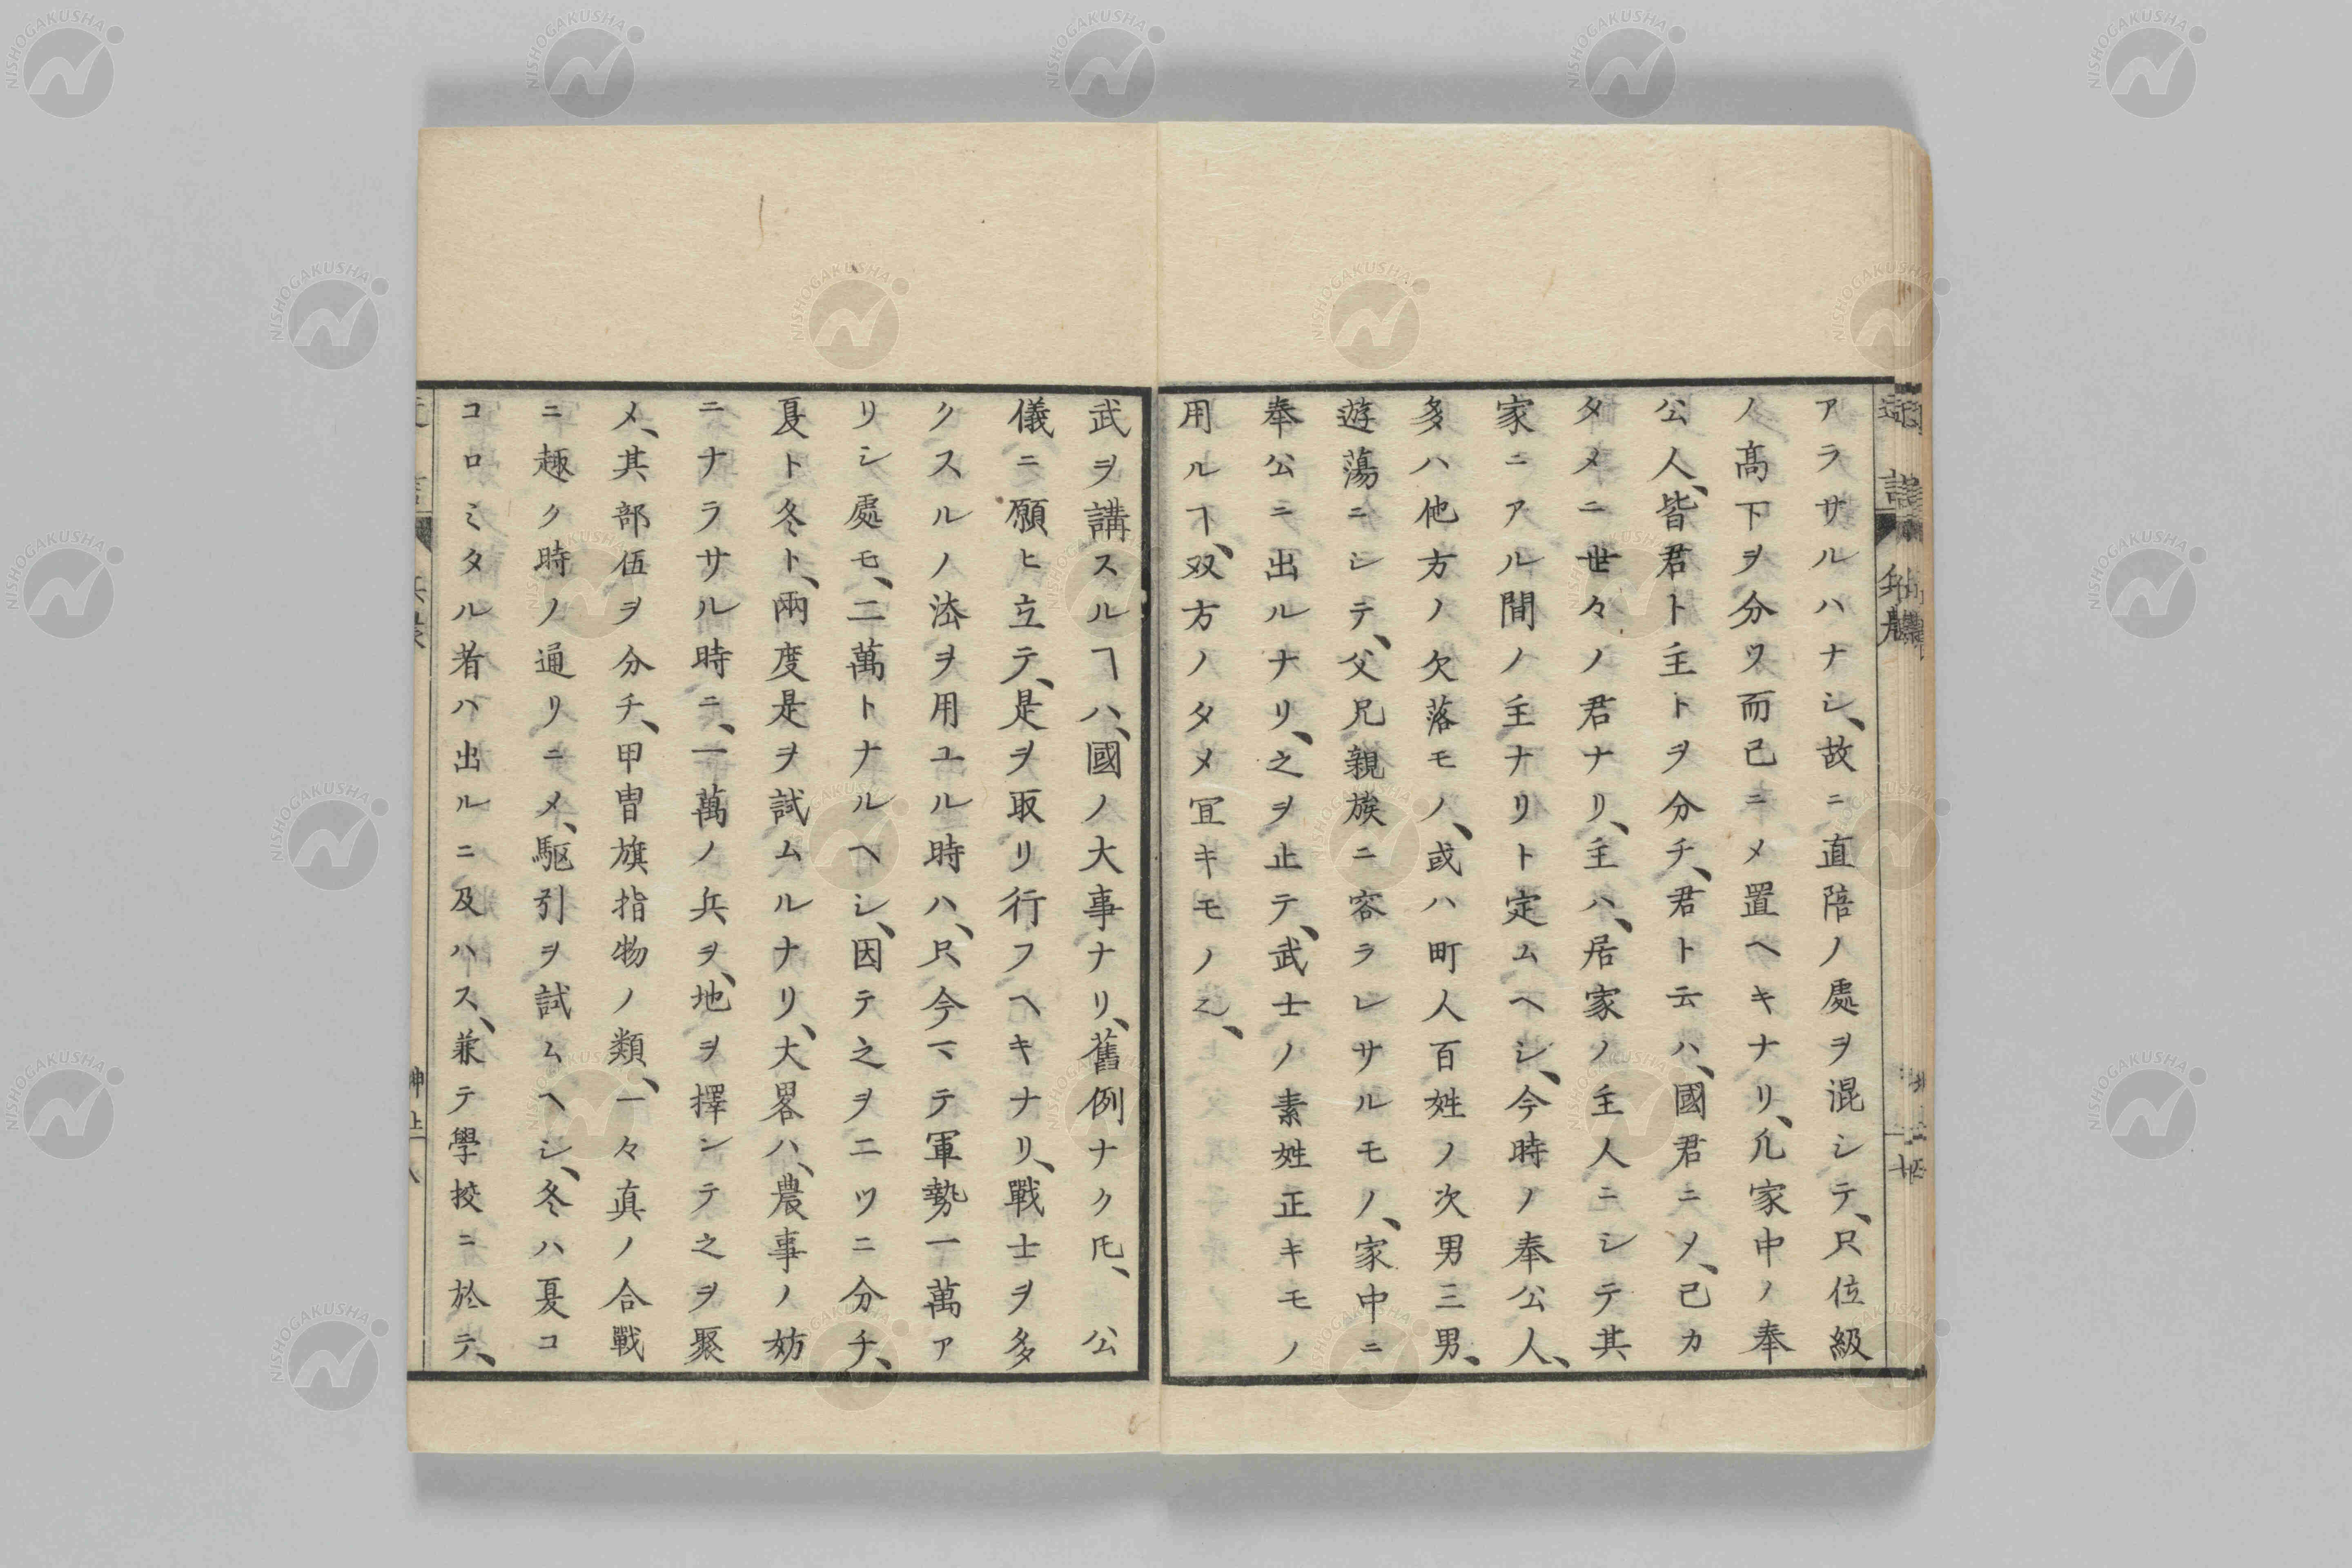 アラサルハナシ、故ニ直陪ノ處ヲ混シテ、只位級
ノ高下ヲ分ツ而已ニメ置ヘキナリ、凡家中ノ奉
公人、皆君ト主トヲ分チ、君ト云ハ、國君ニメ、己カ
タメニ世々ノ君ナリ、主ハ、居家ノ主人ニシテ其
家ニアル間ノ主ナリト定ムヘシ、今時ノ奉公人、
多ハ他方ノ欠落モノ、或ハ町人百姓ノ次男三男、
遊蕩ニシテ、父兄親族ニ容ラレサルモノ、家中ニ
奉公ニ出ルナリ、之ヲ止テ、武士ノ素姓正キモノ
用ルヿ、双方ノタメ宜キモノ也、
武ヲ講スルヿハ、國ノ大事ナリ、舊例ナク𪜈、公
儀ニ願ヒ立テ、是ヲ取リ行フヘキナリ、戰士ヲ多
クスルノ法ヲ用ユル時ハ、只今マテ軍勢一萬ア
リシ處モ、二萬トナルヘシ、因テ之ヲ二ツニ分チ、
夏ト冬ト、兩度是ヲ試ムルナリ、大畧ハ、農事ノ妨
ニナラサル時ニ、一萬ノ兵ヲ、地ヲ擇ンテ之ヲ聚
メ、其部伍ヲ分チ、甲冑旗指物ノ類、一々真ノ合戰
ニ趣ク時ノ通リニメ、駆引ヲ試ムヘシ、冬ハ夏コ
コロミタル者ハ出ルニ及ハス、兼テ學挍ニ於テ、